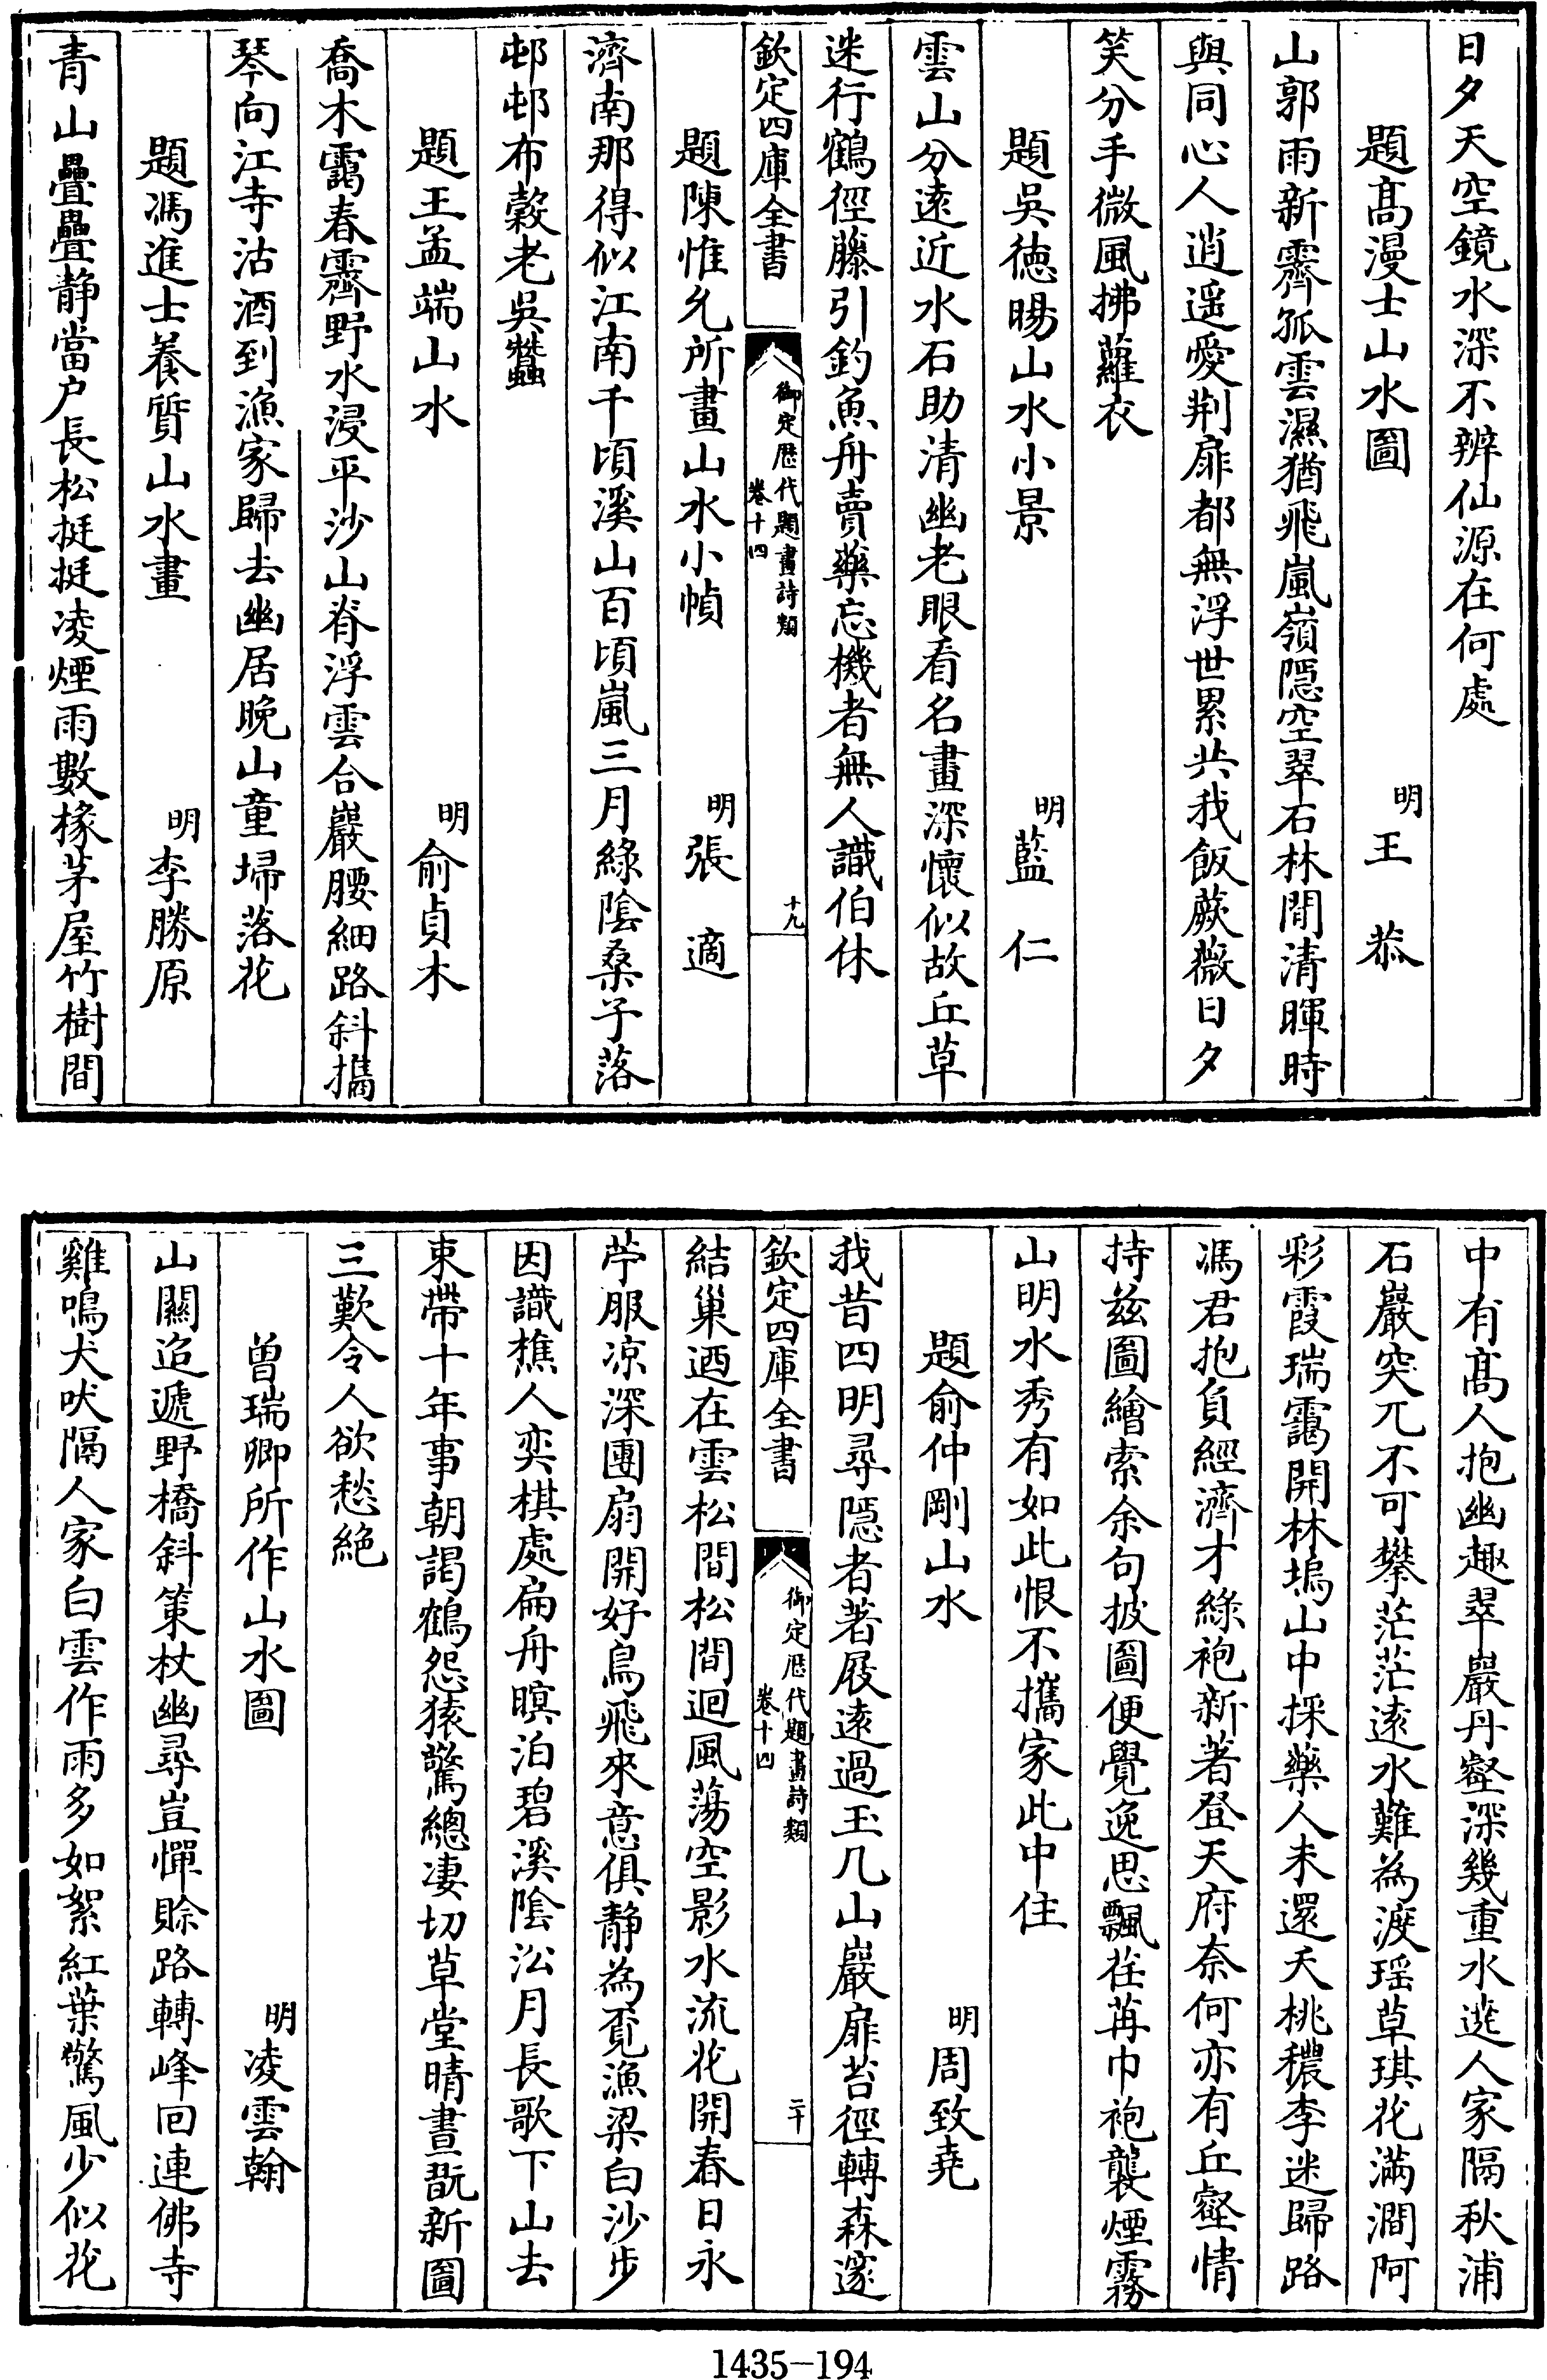 日夕天空鏡水深不辨仙源在何處
題髙漫士山水圖 明 王恭
山郭雨新霽孤雲濕猶飛嵐嶺隠空翠石林閒清暉時
與同心人逍遥愛荆扉都無浮世累共我飯蕨薇日夕
笑分手微風拂蘿衣
題吳徳暘山水小景 明 藍仁
雲山分逺近水石助清幽老眼看名畫深懐似故丘草
迷行鶴徑藤引釣魚舟賣藥忘機者無人識伯休
欽定四庫全書 御定歴代題畫詩類 卷十四 十九
題陳惟允所畫山水小幀 明 張適
濟南那得似江南千頃溪山百頃嵐三月綠陰桑子落
邨邨布穀老吳蠶
題王孟端山水 明 俞貞木
喬木靄春霽野水浸平沙山脊浮雲合巖腰細路斜攜
琴向江寺沽酒到漁家歸去幽居晚山童埽落花
題馮進士養質山水畫 明 李勝原
青山疊疊静當户長松挺挺凌煙雨數椽茅屋竹樹間
中有髙人抱幽趣翠巖丹壑深幾重水遶人家隔秋浦
石巖突兀不可攀茫茫逺水難為渡瑶草琪花滿澗阿
彩霞瑞靄開林塢山中採藥人未還夭桃穠李迷歸路
馮君抱負經濟才綠袍新著登天府奈何亦有丘壑情
持兹圖繪索余句披圖便覺逸思飄荏苒巾袍襲煙霧
山明水秀有如此恨不攜家此中住
題俞仲剛山水 明 周致堯
我昔四明尋隱者著屐逺過玉几山巖扉苔徑轉森邃
欽定四庫全書 御定歴代題畫詩類 卷十四 二十
結巢迺在雲松間松間迴風蕩空影水流花開春日永
苧服凉深團扇開好鳥飛來意俱静為覔漁梁白沙步
因識樵人奕棋處扁舟暝泊碧溪陰㳂月長歌下山去
束帶十年事朝謁鶴怨猿驚總凄切草堂晴晝翫新圖
三歎令人欲愁絶
曽瑞卿所作山水圖 明 凌雲翰
山闗迢遞野橋斜策杖幽尋豈憚賒路轉峰回連佛寺
雞鳴犬吠隔人家白雲作雨多如絮紅葉驚風少似花
1435-194